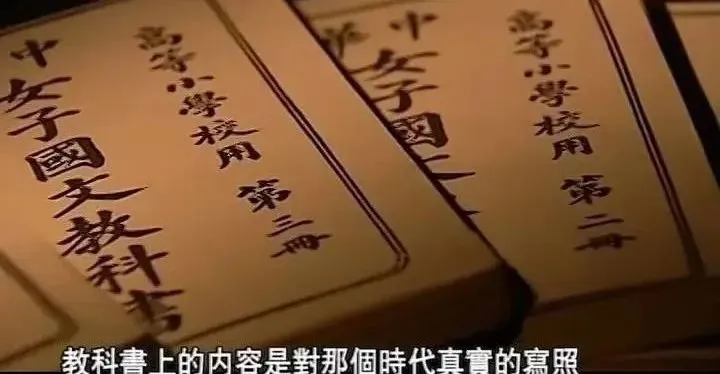 高等小學校用 第三冊
中
女子國文教科書
高等小學校用 第二冊
中華
女子國文
教科書上的内容是對那個時代真實的寫照